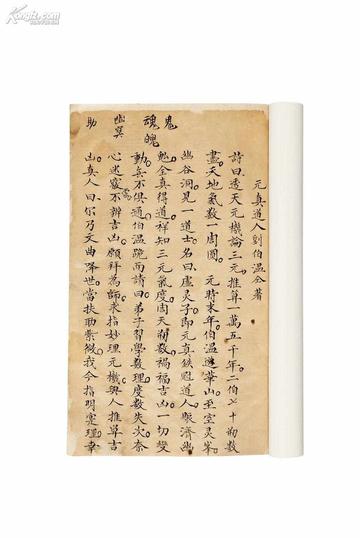 Kongfz.com
鬼
魂
魄
幽冥
助
元真道人劉伯溫全著
詩曰透天元機論三元推算一萬五千年二伯七十朔數
盡天地氣數一周圓 元時末年伯溫遊華山至室灵峯
幽谷洞見一道士名曰虛灵子即元真鉄冠道人賑濟幽
魁全真得道祥知三元氣度周天朔數禍福吉凶一切變
動無不俱通伯溫跪而請曰弟子習學數理度數失次奈
心迷竅不辨吉凶願拜為師求指妙理元機與人推算吉
凶真人曰尔乃文曲降世當扶助紫微我今指明寔理幸